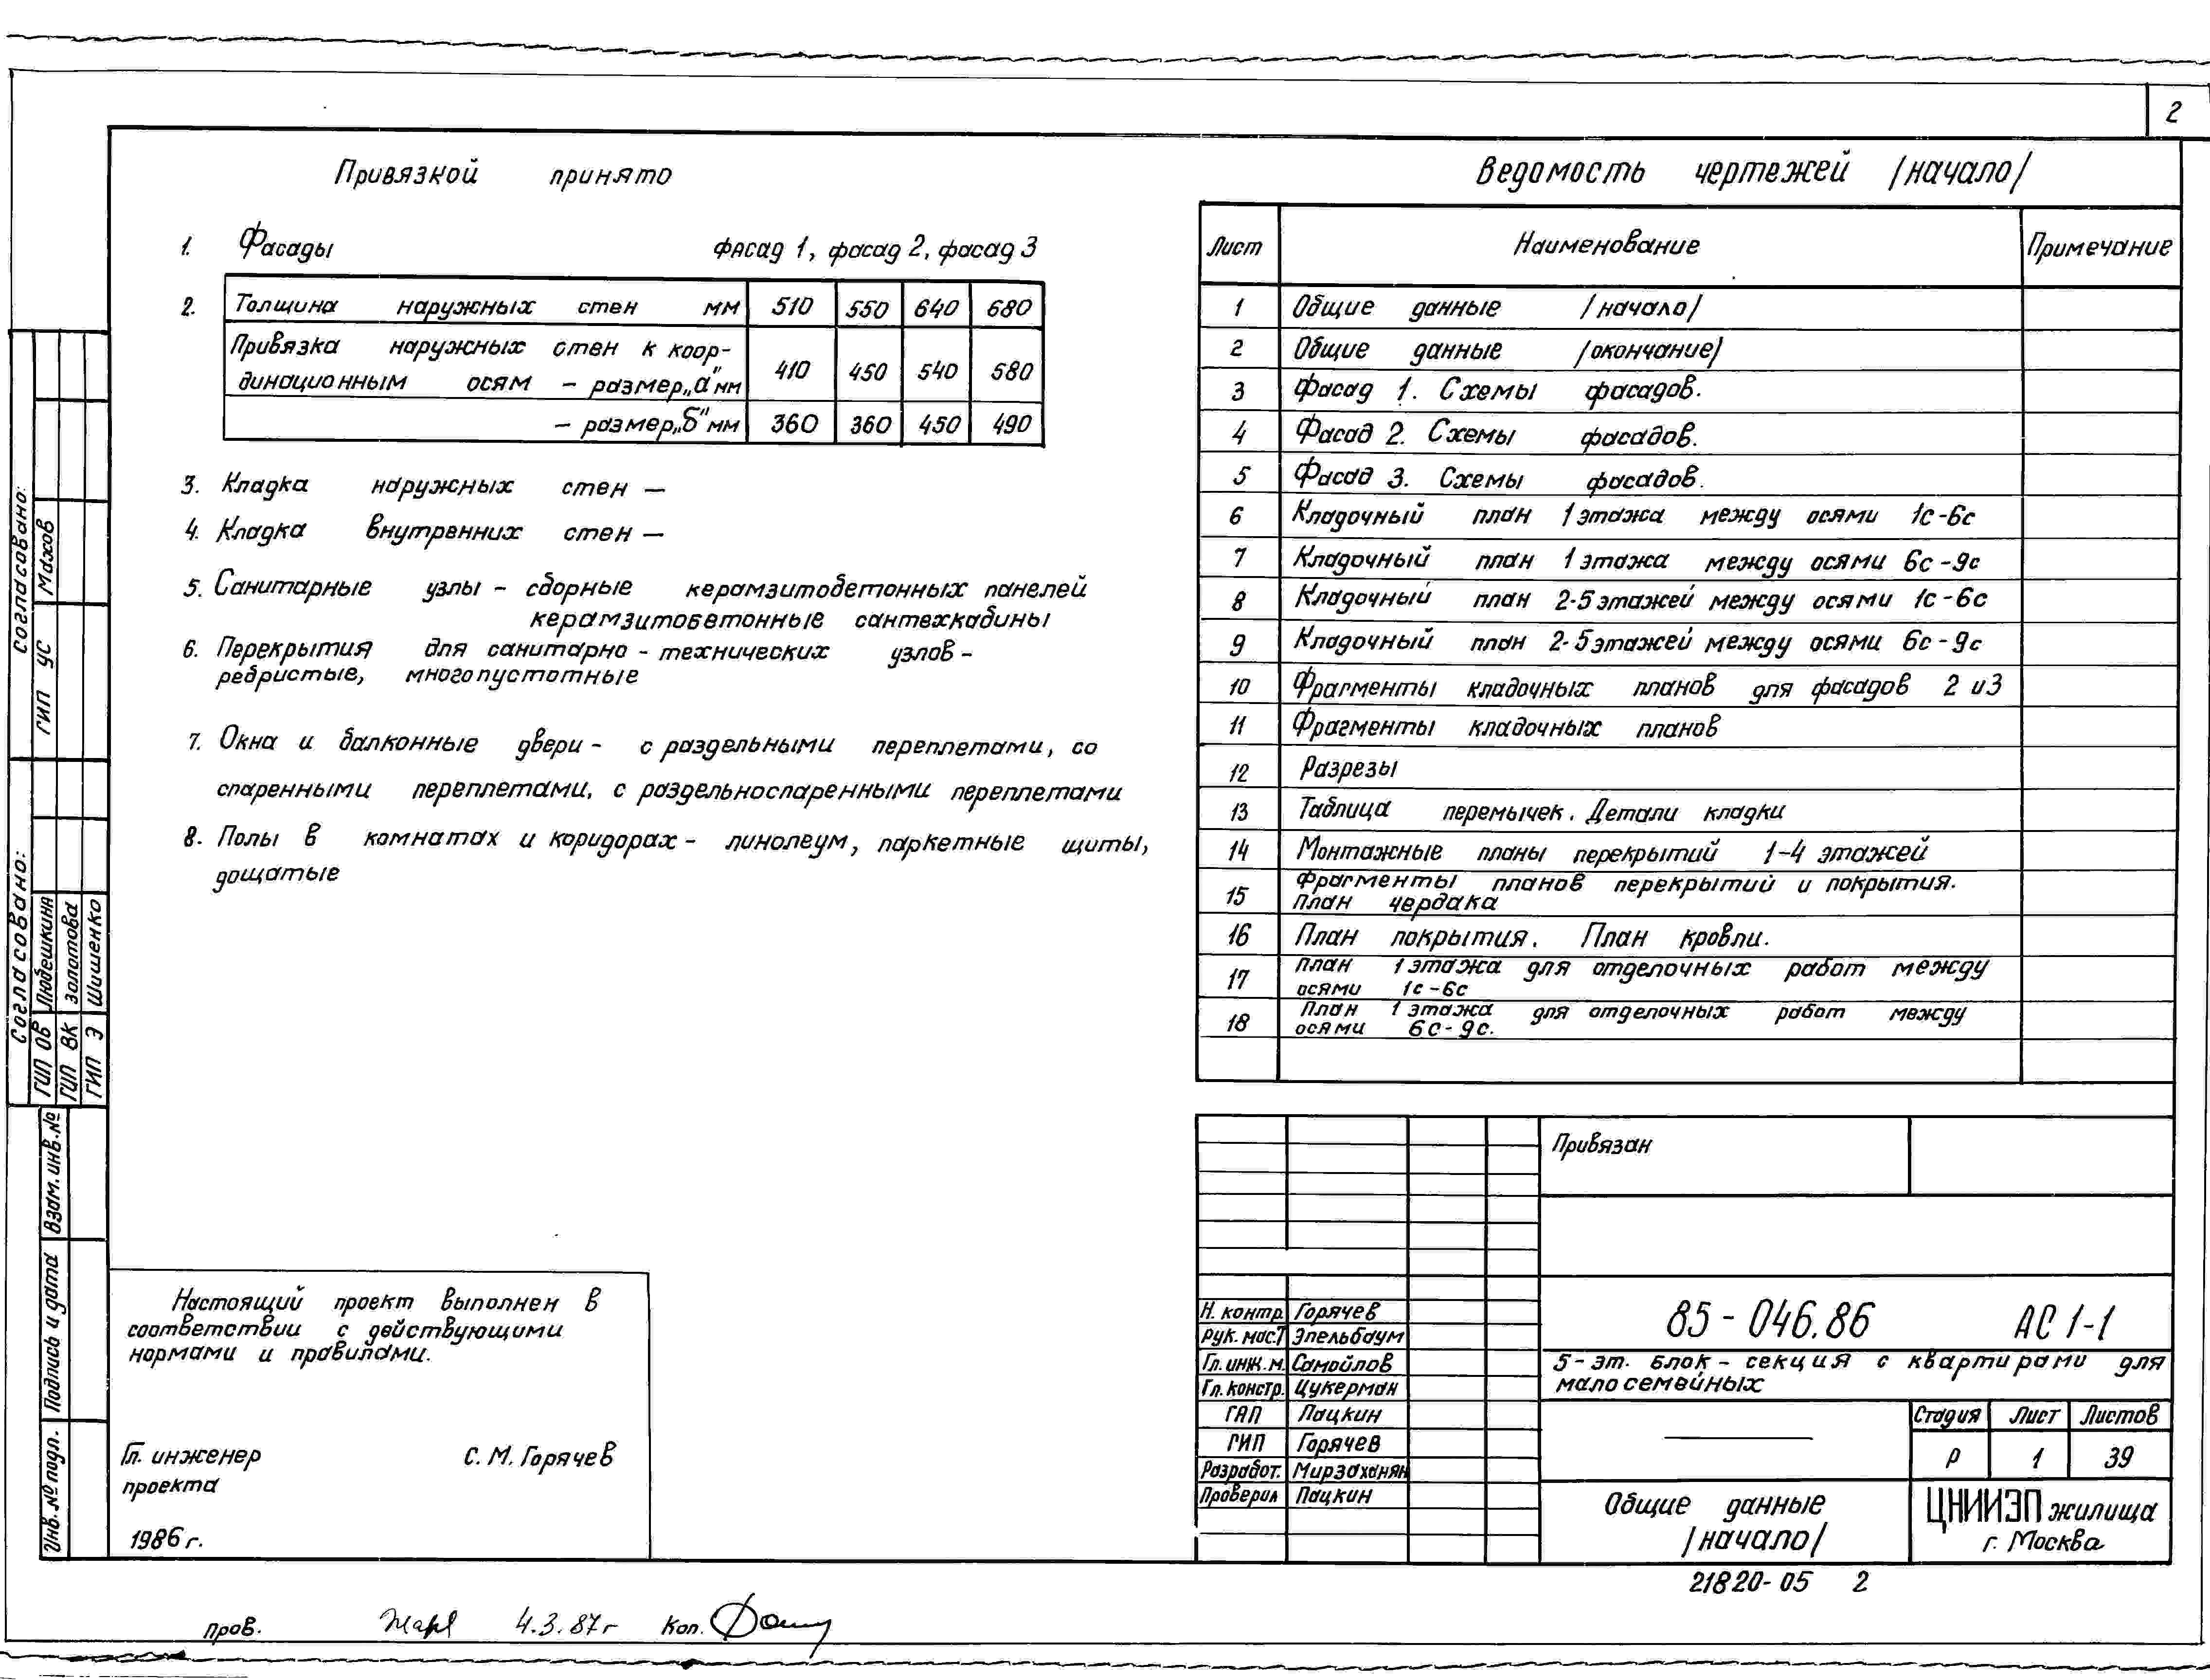 2
Привязкой принято
1. Фасады фасад 1, фасад 2, фасад 3
2. Толщина наружных стен мм 510 550 640 680
Привязка наружных стен к коор-
динационным осям - размер „а" мм 410 450 540 580
- размер „б" мм 360 360 450 490
3. Кладка наружных стен —
4. Кладка внутренних стен —
5. Санитарные узлы - сборные керамзитобетонных панелей
керамзитобетонные сантехкабины
6. Перекрытия для санитарно - технических узлов -
ребристые, многопустотные
7. Окна и балконные двери - с раздельными переплетами, со
спаренными переплетами, с раздельноспаренными переплетами
8. Полы в комнатах и коридорах - линолеум, паркетные щиты,
дощатые
Ведомость чертежей /начало/
Лист Наименование Примечание
1 Общие данные /начало/
2 Общие данные /окончание/
3 Фасад 1. Схемы фасадов.
4 Фасад 2. Схемы фасадов.
5 Фасад 3. Схемы фасадов.
6 Кладочный план 1 этажа между осями 1с-6с
7 Кладочный план 1 этажа между осями 6с-9с
8 Кладочный план 2-5 этажей между осями 1с-6с
9 Кладочный план 2-5 этажей между осями 6с-9с
10 Фрагменты кладочных планов для фасадов 2 и 3
11 Фрагменты кладочных планов
12 Разрезы
13 Таблица перемычек. Детали кладки
14 Монтажные планы перекрытий 1-4 этажей
15 Фрагменты планов перекрытий и покрытия.
План чердака
16 План покрытия. План кровли.
17 План 1 этажа для отделочных работ между
осями 1с-6с
18 План 1 этажа для отделочных работ между
осями 6с-9с.
Согласовано:
ГИП УС Махов
Согласовано:
ГИП ОВ Любешкина
ГИП ВК Золотова
ГИП Э Шишенко
Взам. инв. №
Подпись и дата
Инв. № подл.
Настоящий проект выполнен в
соответствии с действующими
нормами и правилами.
Гл. инженер С. М. Горячев
проекта
1986 г.
Привязан
Н. контр. Горячев
Рук. маст. Эпельбаум
Гл. инж. м. Самойлов
Гл. констр. Цукерман
ГАП Пацкин
ГИП Горячев
Разработ. Мирзаханян
Проверил Пацкин
85-046.86 АС 1-1
5-эт. блок-секция с квартирами для
малосемейных
Стадия Лист Листов
Р 1 39
Общие данные
/начало/
ЦНИИЭП жилища
г. Москва
21820-05 2
Пров. 4.3.87г Коп.